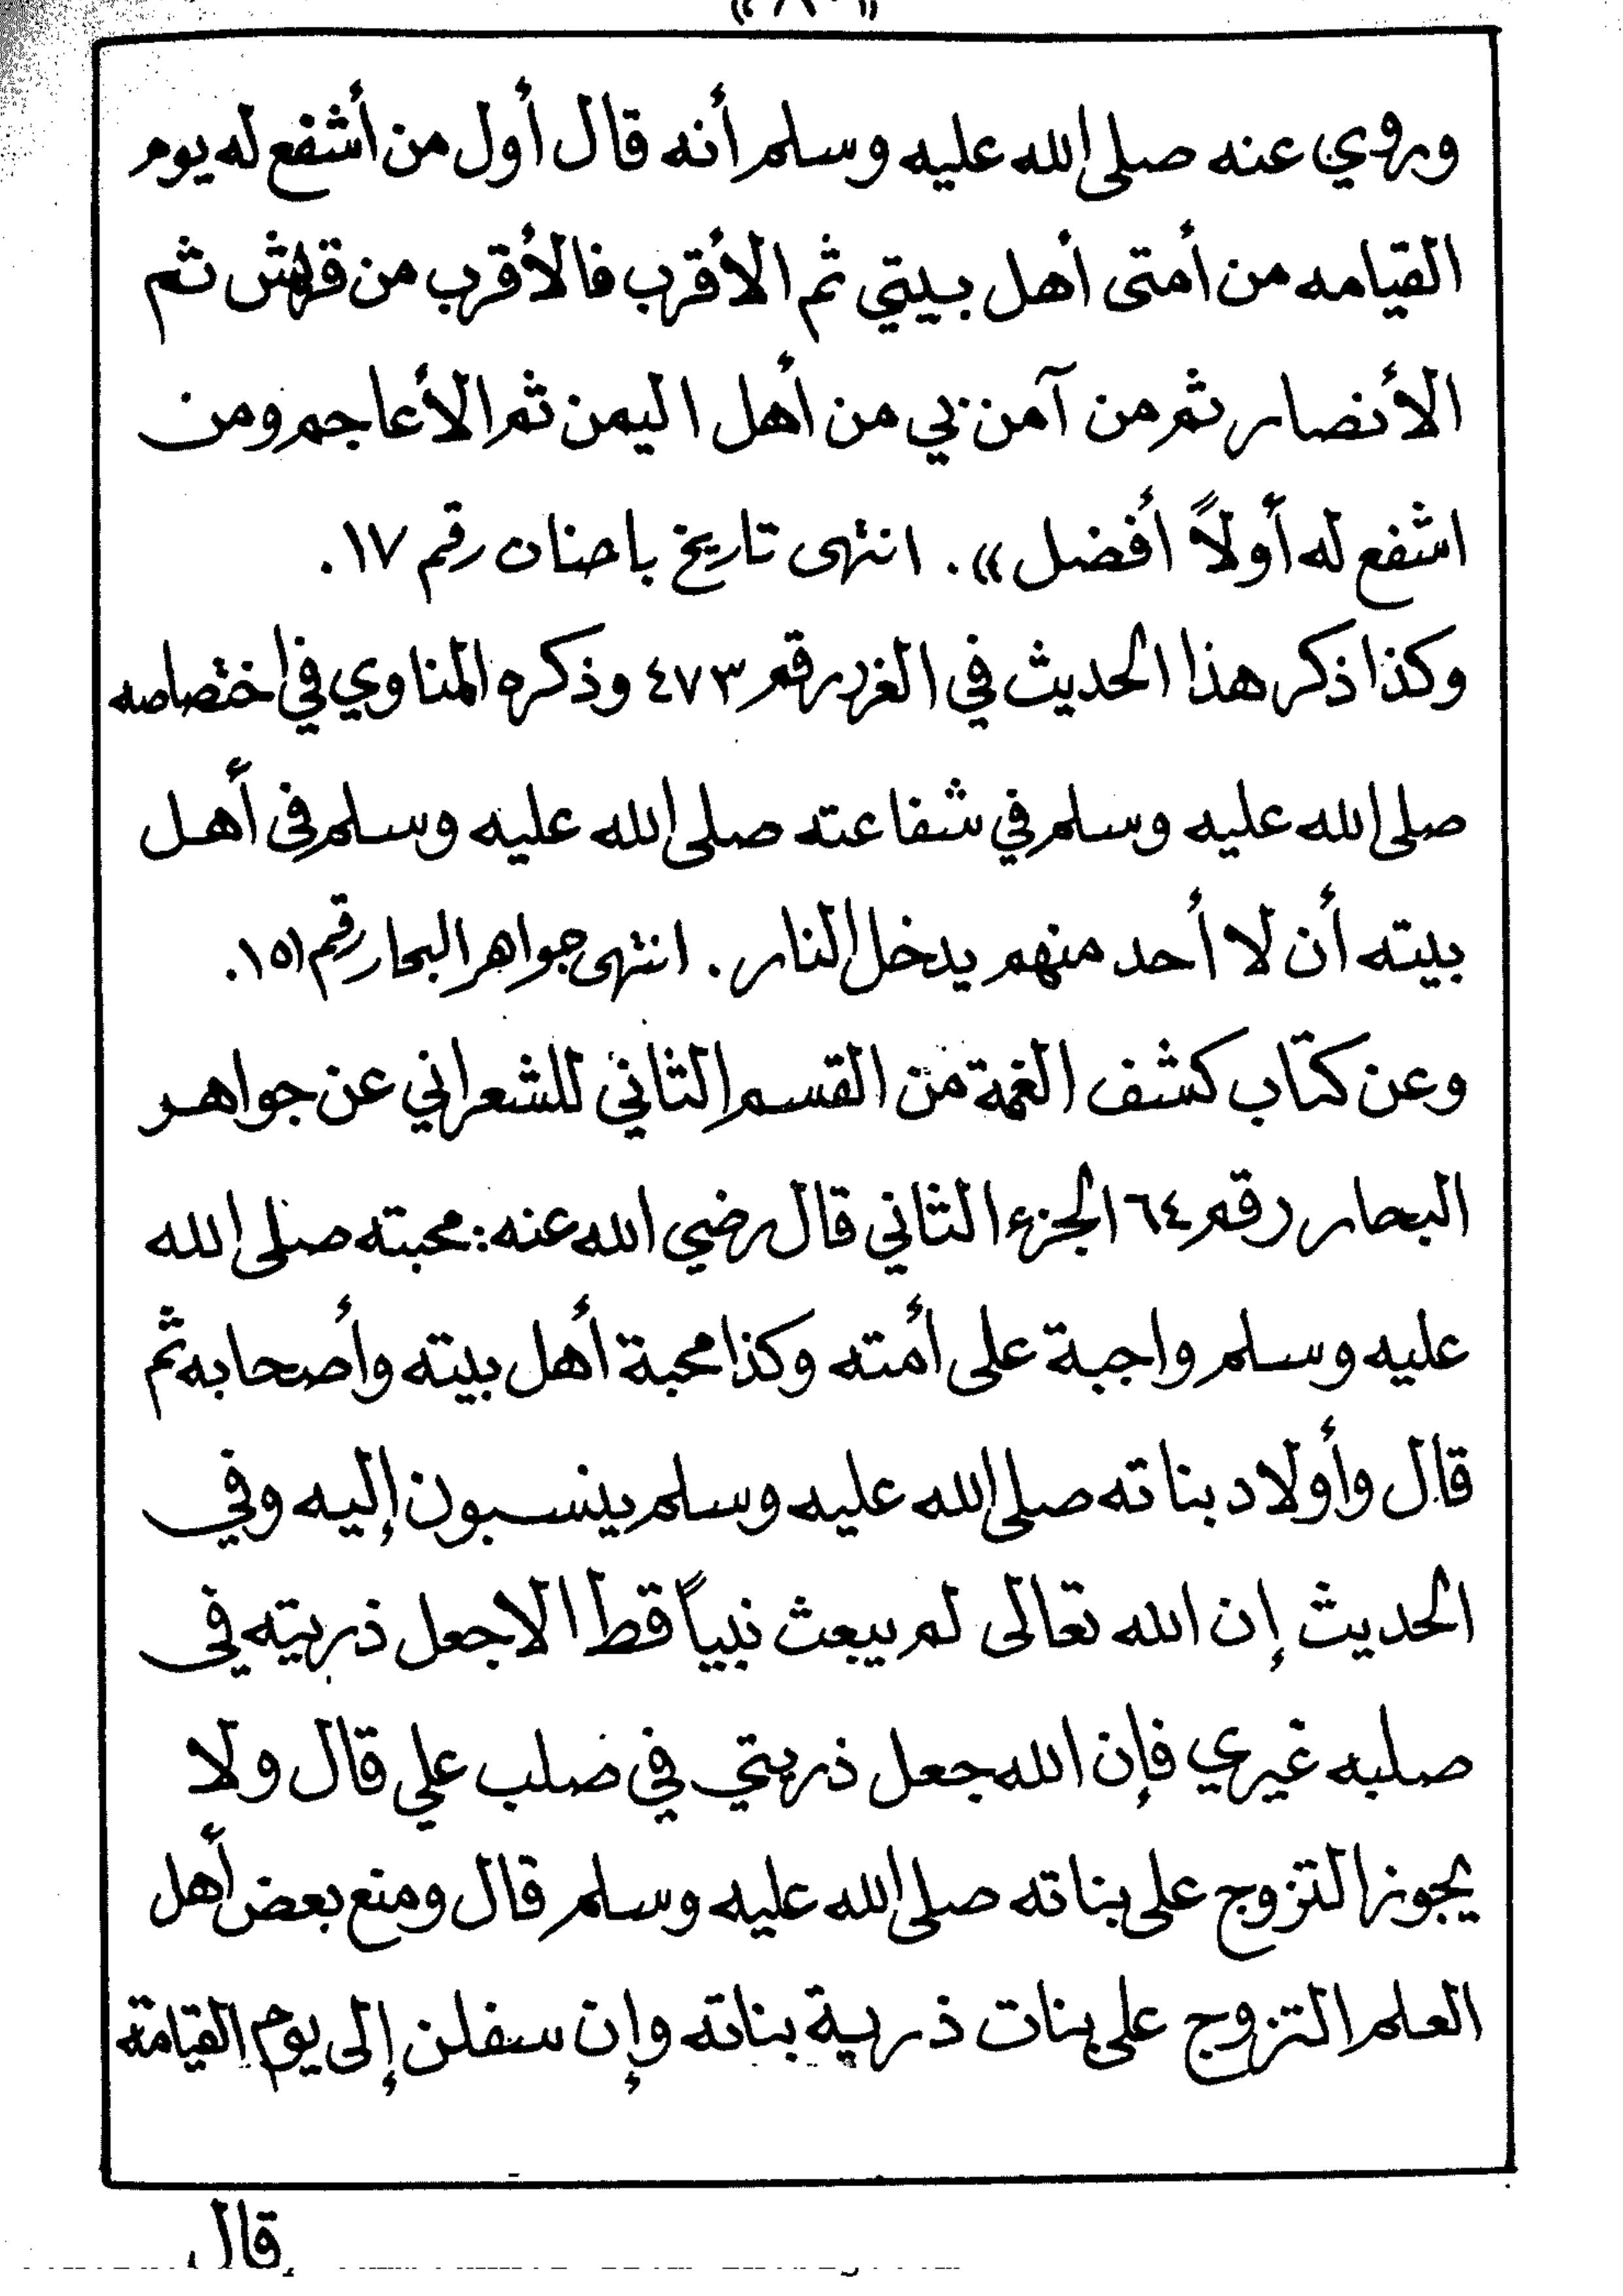 وروي عنه صلى الله عليه وسلم أنه قال أول من أشفع له يوم
القيامه من أمتى أهل بيتي ثم الأقرب فالأقرب من قريش ثم
الأنصار ثم من آمن بي من أهل اليمن ثم الأعاجم ومن
اشفع له أولاً أفضل». انتهى تاريخ باحنان رقم ١٧.
وكذا ذكر هذا الحديث في الغرر رقم ٤٧٣ وذكره المناوي في اختصاصه
صلى الله عليه وسلم في شفاعته صلى الله عليه وسلم فى أهل
بيته أن لا أحد منهم يدخل النار. انتهى جواهر البحار رقم ١٥١.
وعن كتاب كشف الغمة من القسم الثاني للشعراني عن جواهر
البحار رقم ٦٤ الجزء الثاني قال رضي الله عنه: محبته صلى الله
عليه وسلم واجبة على أمته وكذا محبة أهل بيته وأصحابه ثم
قال وأولاد بناته صلى الله عليه وسلم ينسبون إليه وفي
الحديث إن الله تعالى لم يبعث نبياً قط الا جعل ذريته فى
صلبه غيري فإن الله جعل ذريتي في صلب علي قال ولا
يجوز التزوج على بناته صلى الله عليه وسلم قال ومنع بعض أهل
العلم التزوج على بنات ذرية بناته وإن سفلن إلى يوم القيامة
قال